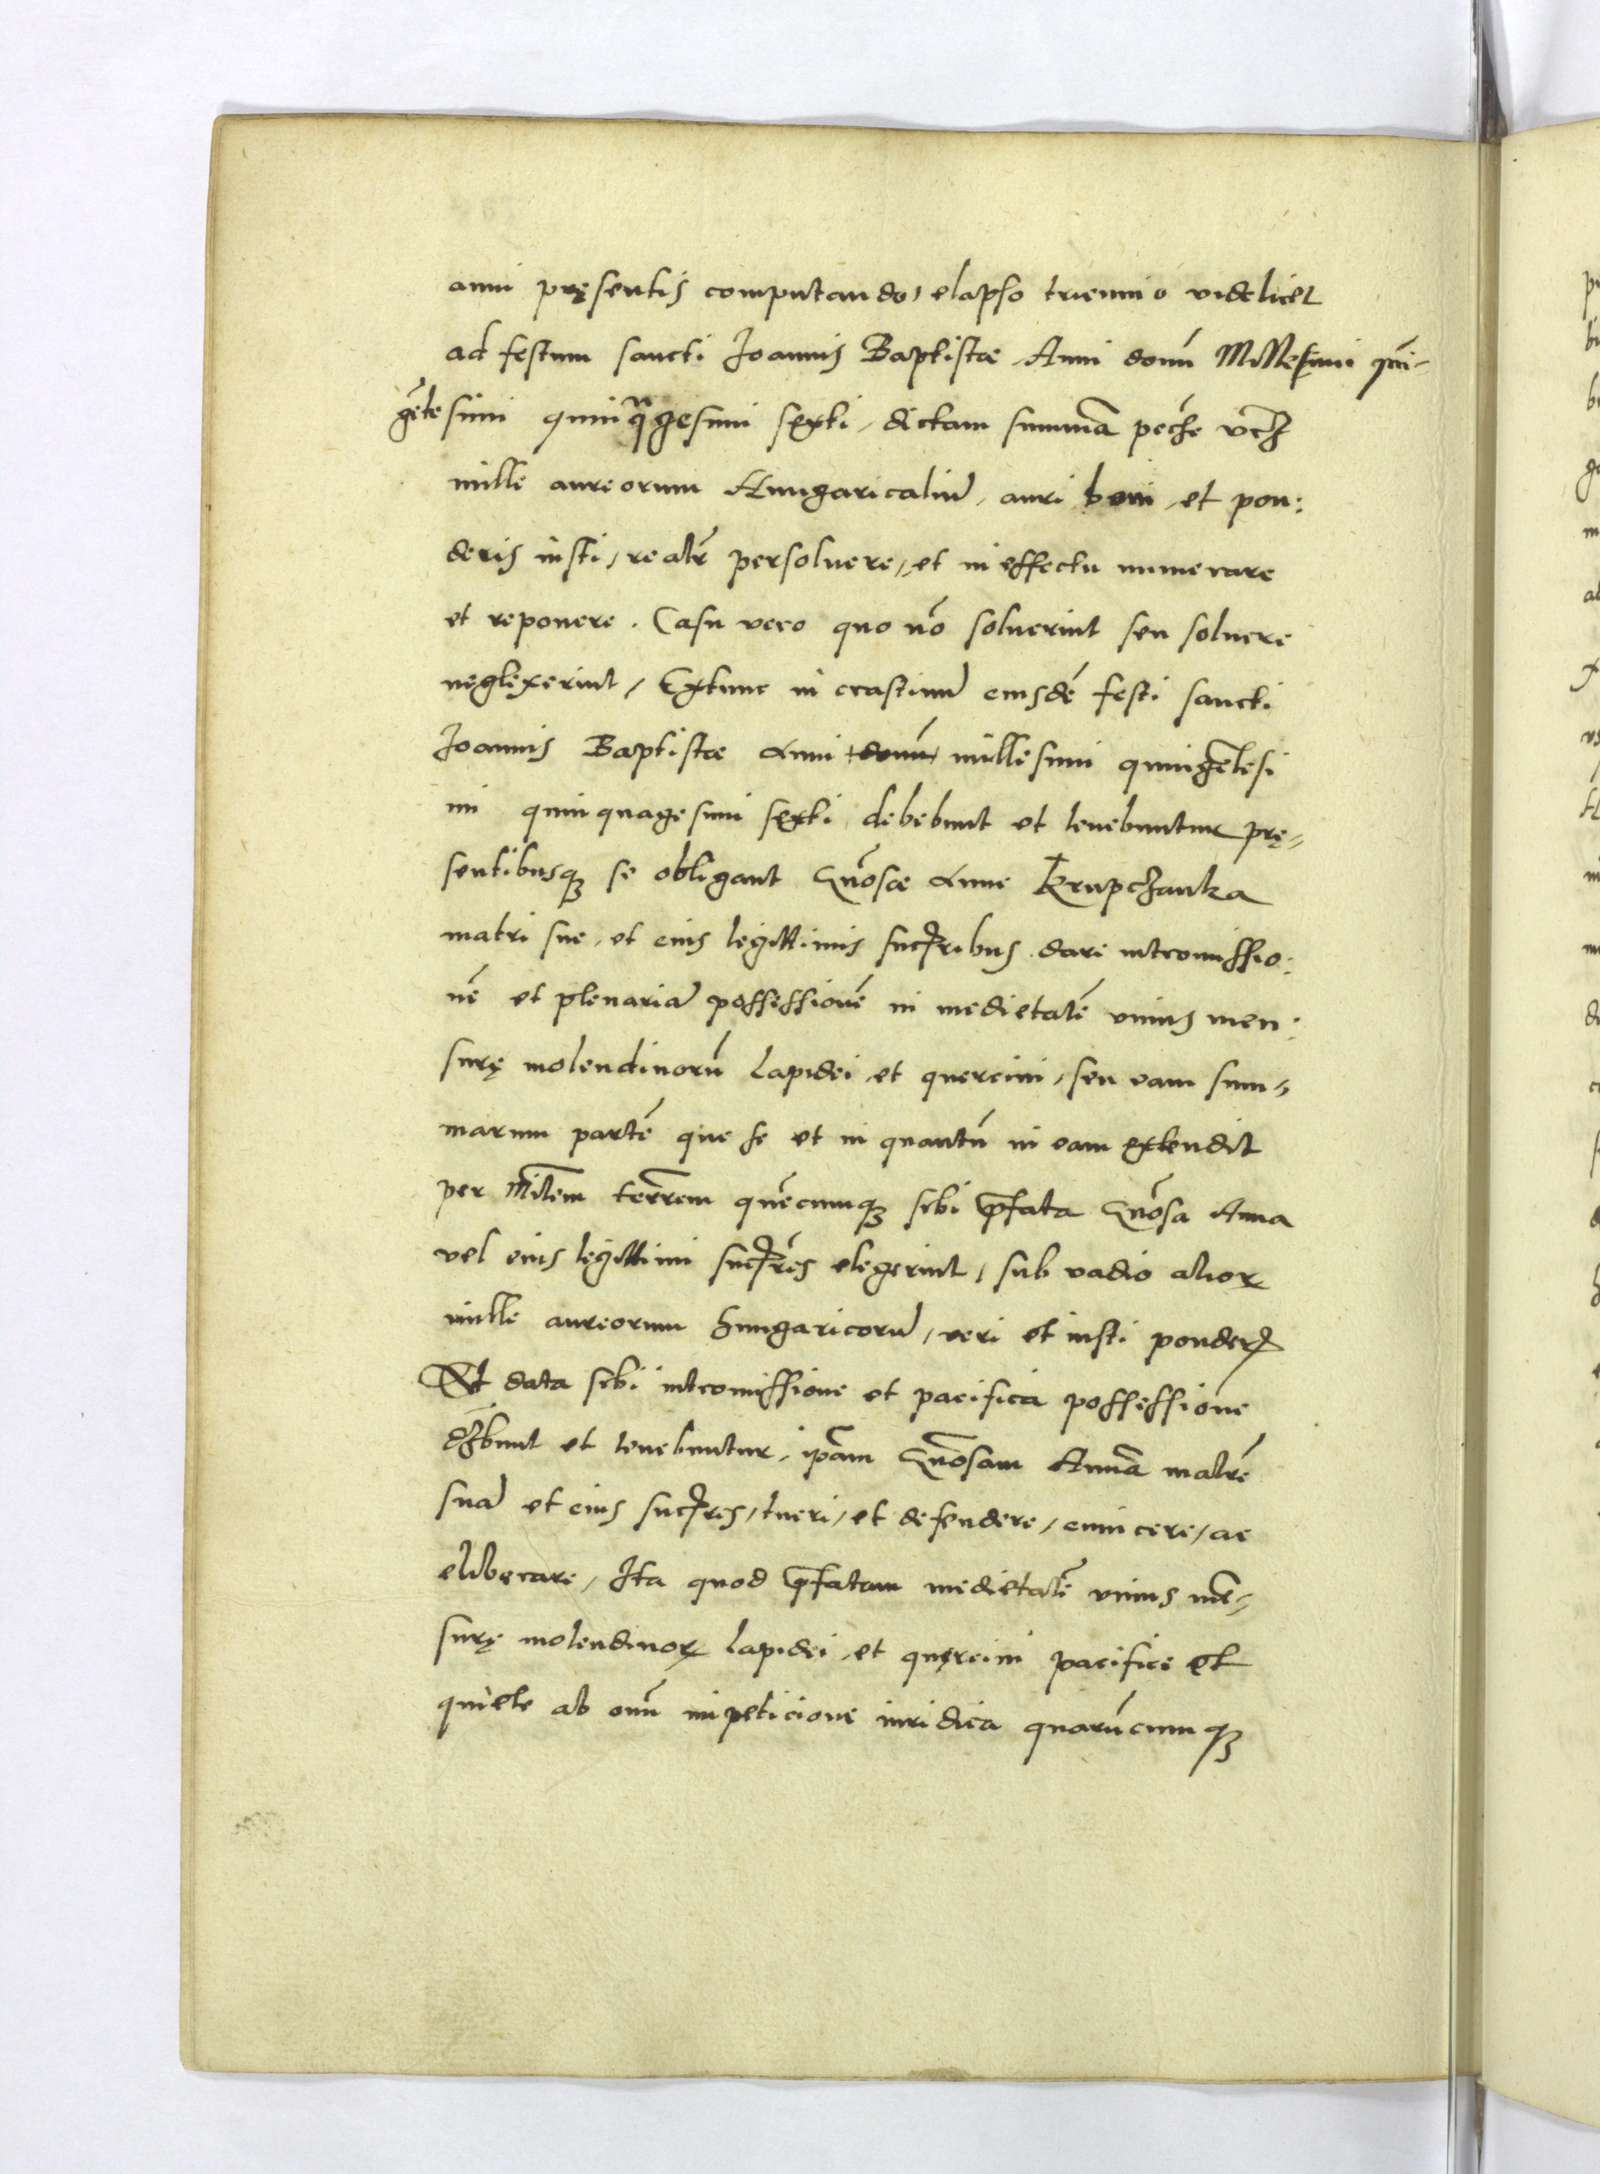 anni pręsentis computando, elapso triennio videlicet
ad festum sancti Joannis Baptistæ Anni domĩ Millesimi qui-
gẽtesimi quinqᵃgesimi sexti, dictam summã
mille aureorum Hungaricaliũ, auri boni, et pon:
deris iusti, realr̃ persoluere, et in effectu numerare
et reponere. Casu vero quo nõ soluerint seu soluere
neglexerint, Extunc in crastinũ eiusdẽ festi sancti
Joannis Baptistæ Anni domĩ millesimi quingẽtesi
mi quinquagesimi sexti debebunt et tenebuntur prę-
sentibusqꝫ se obligant Gñosæ Anne Krupczanka
matri sue, et eius legittimis succ̃ribus dare intromissio:
nẽ et plenariã possessionẽ in medietatẽ vnius men:
surę molendinorũ lapidei et quercini, seu eam sum-
marum partẽ que se et in quantũ in eam extendit
per Mĩlem terr̃rem quẽcumqꝫ sibi p̃fata Gñosa Anna
vel eius legittimi succ̃res elegerint, sub vadio alioꝝ
mille aureorum hungaricorũ, veri et iusti ponderis
Et data sibi intromissione et pacifica possessione
dẽbunt et tenebuntur, ip̃am Gñosam Annã matrẽ
suã et eius succ̃res, tueri, et defendere, euincere, ac
eliberare, Ita quod p̃fatam medietatẽ vnius mẽ-
surę molendinoꝝ lapidei et quercini pacifice et
quiete ab om̃i impeticione iuridica quarũcumqꝫ